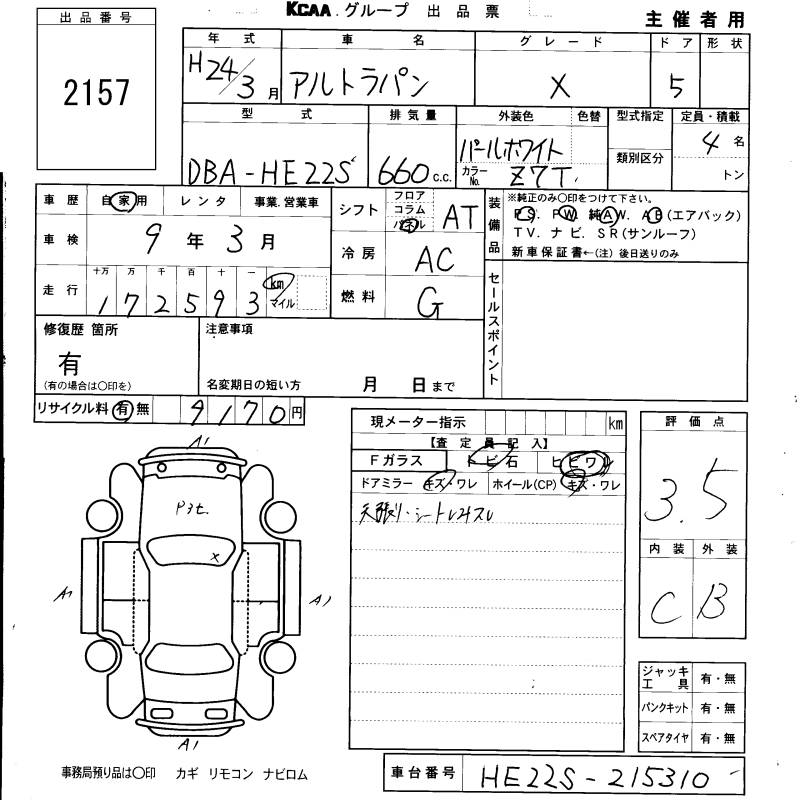 KCAA グループ 出品票
主催者用
出品番号
2157
年式 車名 グレード ドア 形状
H24/3月 アルトラパン X 5
型式 排気量 外装色 色替 型式指定 定員・積載
DBA-HE22S 660 c.c. パールホワイト 4名
カラーNo. Z7T 類別区分 トン
車歴 自家用 レンタ 事業.営業車
車検 9年3月
走行 十万 万 千 百 十 一
172593 km マイル
シフト フロア コラム パネル AT
冷房 AC
燃料 G
装備品 ※純正のみ○印をつけて下さい。
PS. PW. 純AW. AB(エアバック)
TV. ナビ. SR(サンルーフ)
新車保証書←(注)後日送りのみ
セールスポイント
修復歴 箇所
有
(有の場合は○印を)
注意事項
名変期日の短い方 月 日まで
リサイクル料 有 無 9170円
現メーター指示 km
【査定員記入】
Fガラス トビ石 ヒビワレ
ドアミラー キズ・ワレ ホイール(CP) キズ・ワレ
天張り・シートシミスレ
評価点
3.5
内装 外装
C B
A1
P3t.
X
A1 A1
A1
ジャッキ工具 有・無
パンクキット 有・無
スペアタイヤ 有・無
事務局預り品は○印 カギ リモコン ナビロム
車台番号 HE22S-215310